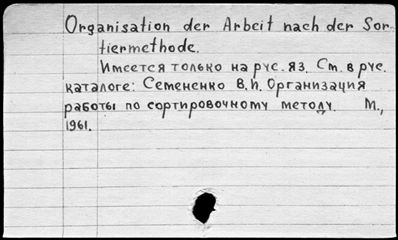 Organisation der Arbeit nach der Sor
tiermethode.
Имеется только на рус. яз. См. в рус.
каталоге: Семененко В.П. Организация
работы по сортировочному методу. М.,
1961.